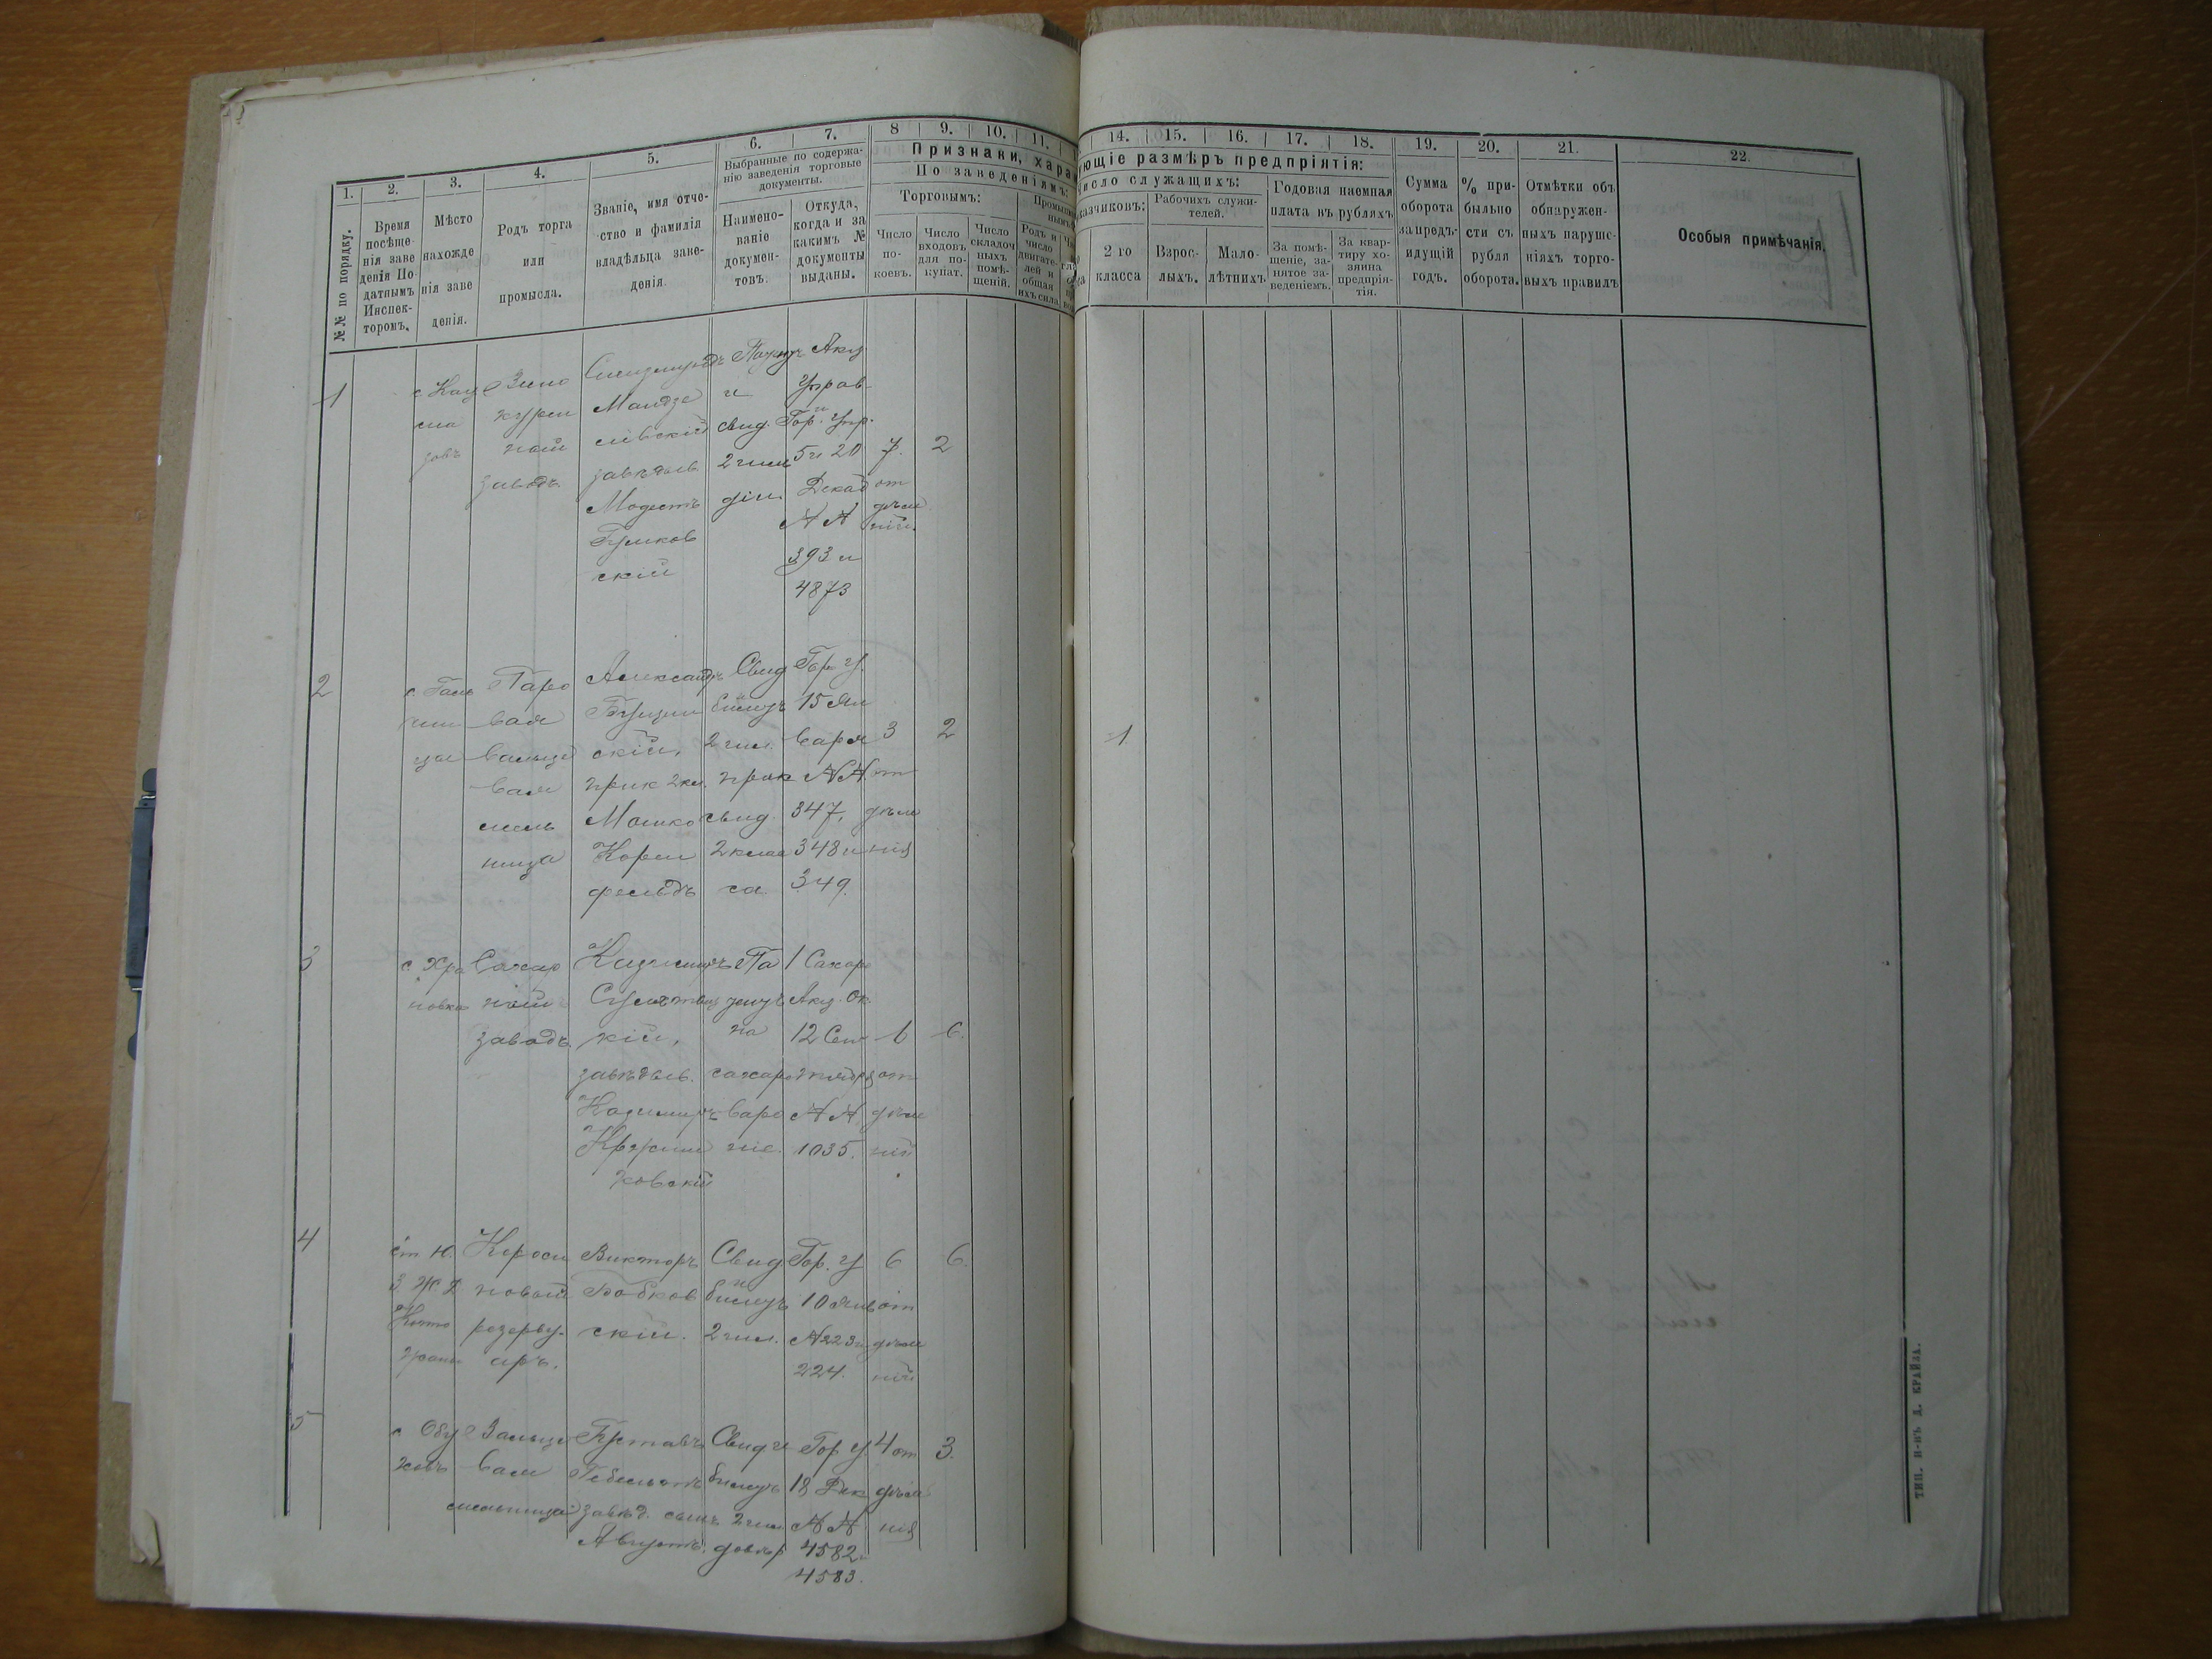 1.
2.
3.
4.
5.
6.
7.
8
9.
10.
11.
14.
15.
16.
17.
18.
19.
20.
21.
22.
№№ по порядку.
Время
посѣще-
нія заве
денія По
датнымъ
Инспек-
торомъ.
Мѣсто
нахожде
нія заве
денія.
Родъ торга
или
промысла.
Званіе, имя отче-
ство и фамилія
владѣльца заве-
денія.
Выбранные по содержа-
нію заведенія торговые
документы.
Наимено-
ваніе
докумен-
товъ.
Откуда,
когда и за
какимъ №
документы
выданы.
Признаки, хара
По заведеніямъ:
Торговымъ:
Число
по-
коевъ.
Число
входовъ
для по-
купат.
Число
складоч
ныхъ
помѣ-
щеній.
Родъ и
число
двигате-
лей и
общая
ихъ сила.
ющіе размѣръ предпріятія:
исло служащихъ:
казчиковъ:
2 го
класса
Рабочихъ служи-
телей.
Взрос-
лыхъ.
Мало-
лѣтнихъ
Годовая наемная
плата въ рубляхъ
За помѣ-
щеніе, за-
нятое за-
веденіемъ.
За квар-
тиру хо-
зяина
предпрія-
тія.
Сумма
оборота
за предъ-
идущій
годъ.
% при-
быльно
сти съ
рубля
оборота.
Отмѣтки объ
обнаружен-
ныхъ наруше-
ніяхъ торго-
выхъ правилъ
Особыя примѣчанія.
1
заводъ
Сигизмундъ
завѣдыв.
Модестъ
скій
и
свид.
2 гил
Акц
Управ-
Гор. Упр.
5 и 20
Декаб
№ №
393 и
4873
7.
от
дѣле
ній.
2
2
Паро
вая
вальце
вая
мель
ница
Александръ
скій,
прик 2 кл.
Мошко
Корн
фельдъ
Свид
билетъ
2 гил.
прик
свид.
2 клас
са.
Гор У.
15 Ян
варя
№№
347,
348 и
349.
3
от
дѣле
нія
2
1
3
с. Хра
новка
Сахар
ный
заводъ
Казимиръ
кій,
завѣдыв.
Казимиръ
ковскій
Па
тентъ
на
сахаро
варе
ніе.
1 Сахар
Акц. Ок.
12 Сен
тября
№№
1035.
6
от
дѣле
ній
6.
4
ст. Ю.
З. Ж. Д
Кероси
новый
резерву-
аръ.
Викторъ
Бобков
скій.
Свид
билетъ
2 гил.
Гор. У
10 Янв
№ 223 и
224.
6
от
дѣле
ній
6.
5
с Обу
ховъ
Вальце
вая
мельница
Густавъ
завѣд. сынъ
Августъ.
Свид и
билетъ
2 гил.
довѣр
Гор У
18 Дек
№№
4582 и
4583.
4 от
дѣле
нія
3.
ТИП. Н-ВЪ Д. КРАЙЗА.